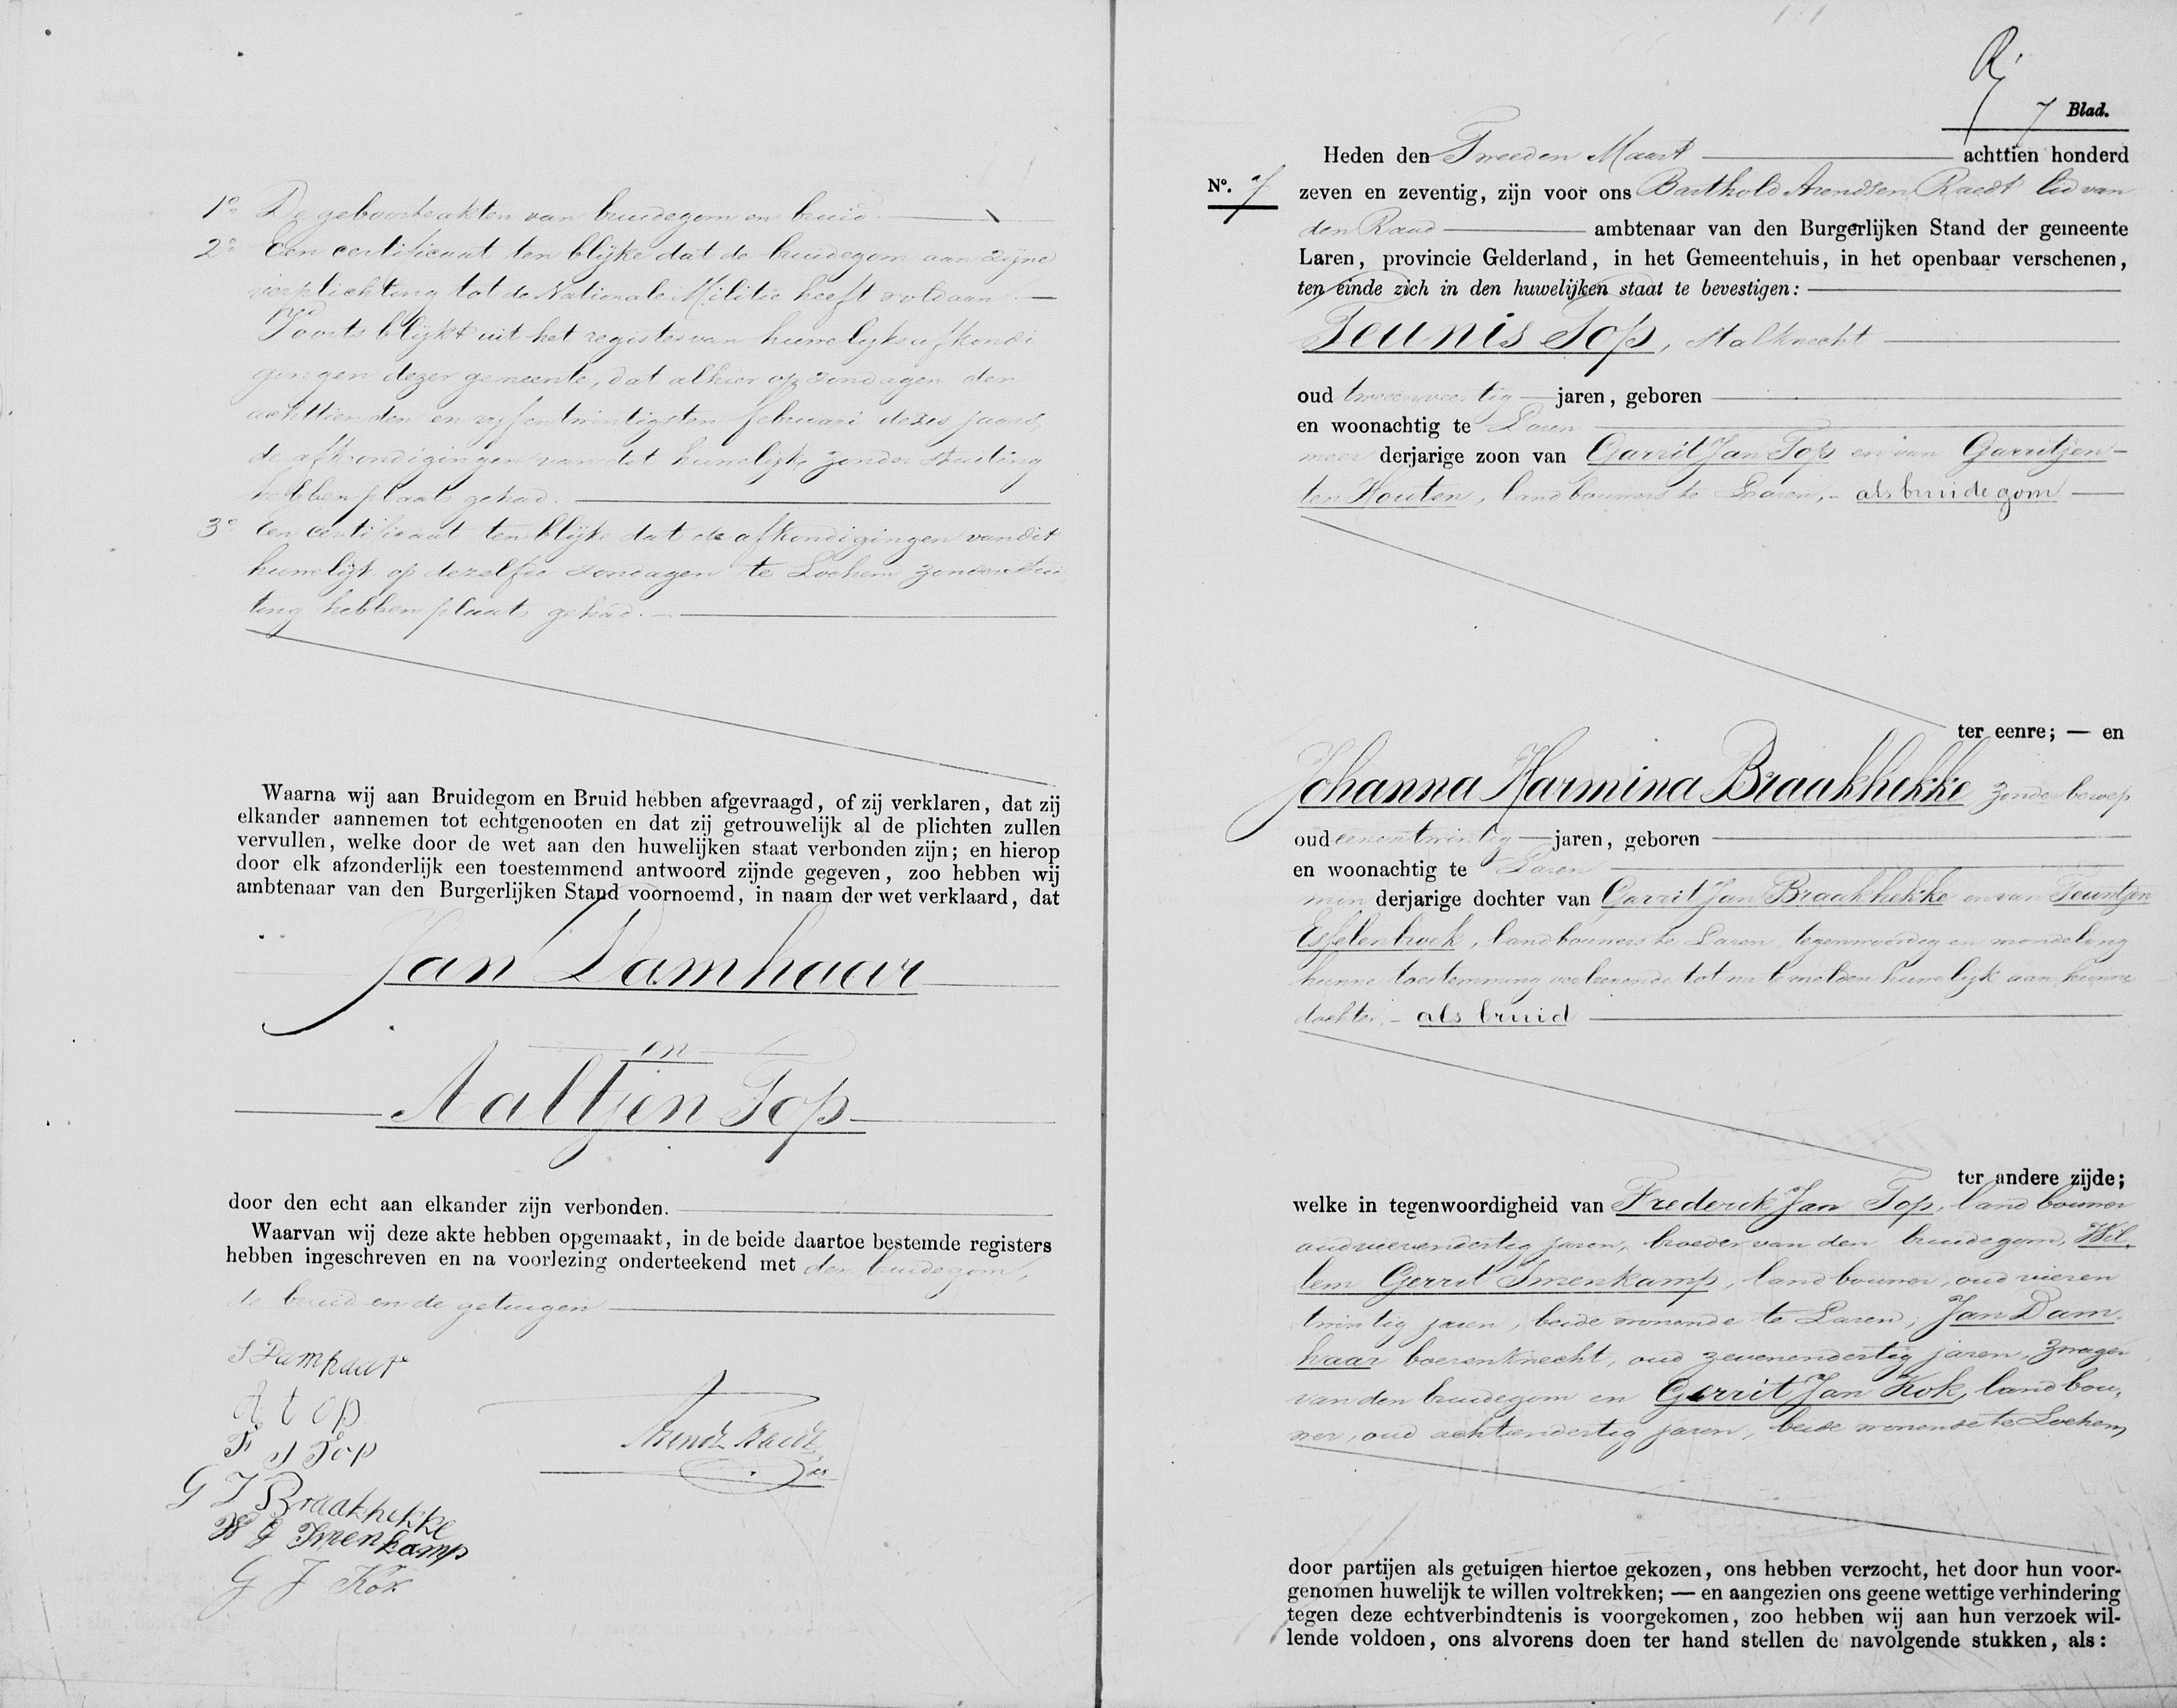 1º De geboorteakten van bruidegom en bruid
2º Een certificaat ten blijke dat de bruidegom aan zijne
verplichting tot de Nationale Militie heeft voldaan.
Voorts blijkt uit het register van huwelijksafkondi
gingen dezer gemeente, dat alhier op zondagen den
achttienden en vijfentwintigsten februari dezes jaars,
de afkondigingen van dit huwelijk zonder stuiting
hebben plaats gehad.
3º Een certificaat ten blijke dat de afkondigingen van dit
huwelijk op dezelfde zondagen te Lochem zonder stui
ting hebben plaats gehad.
Waarna wij aan Bruidegom en Bruid hebben afgevraagd, of zij verklaren, dat zij
elkander aannemen tot echtgenooten en dat zij getrouwelijk al de plichten zullen
vervullen, welke door de wet aan den huwelijken staat verbonden zijn; en hierop
door elk afzonderlijk een toestemmend antwoord zijnde gegeven, zoo hebben wij
ambtenaar van den Burgerlijken Stand voornoemd, in naam der wet verklaard, dat
Jan Damhaar
en
Aaltjen Top
door den echt aan elkander zijn verbonden.
Waarvan wij deze akte hebben opgemaakt, in de beide daartoe bestemde registers
hebben ingeschreven en na voorlezing onderteekend met den bruidegom,
de bruid en de getuigen
J Damhaar
A top
F J Top
G J Braakhekke
W G Smenkamp
G J Kok
Arends Raedt
7 Blad.
Heden den Tweeden Maart achttien honderd
Nº. 7 zeven en zeventig, zijn voor ons Barthold Arendsen Raedt lid van
den Raad ambtenaar van den Burgerlijken Stand der gemeente
Laren, provincie Gelderland, in het Gemeentehuis, in het openbaar verschenen,
ten einde zich in den huwelijken staat te bevestigen:
Teunis Top, stalknecht
oud tweeenveertig jaren, geboren
en woonachtig te Laren
meer derjarige zoon van Garrit Jan Top en van Garritjen
ten Houten, landbouwers te Laren, als bruidegom
ter eenre; — en
Johanna Harmina Braakhekke zonder beroep
oud eenentwintig jaren, geboren
en woonachtig te Laren
min derjarige dochter van Garrit Jan Braakhekke en van Teuntjen
Esselenbroek, landbouwers te Laren, tegenwoordig en mondeling
hunne toestemming verleenende tot na te melden huwelijk aan hunne
dochter, als bruid
ter andere zijde;
welke in tegenwoordigheid van Frederik Jan Top, landbouwer
oud vierendertig jaren, broeder van den bruidegom, Wil-
lem Gerrit Smenkamp, landbouwer, oud vieren
twintig jaren, beide wonende te Laren, Jan Dam-
haar boerenknecht, oud zevenendertig jaren, zwager
van den bruidegom en Gerrit Jan Kok, landbou-
wer, oud achtendertig jaren, beide wonende te Lochem
door partijen als getuigen hiertoe gekozen, ons hebben verzocht, het door hun voor-
genomen huwelijk te willen voltrekken; — en aangezien ons geene wettige verhindering
tegen deze echtverbindtenis is voorgekomen, zoo hebben wij aan hun verzoek wil-
lende voldoen, ons alvorens doen ter hand stellen de navolgende stukken, als: